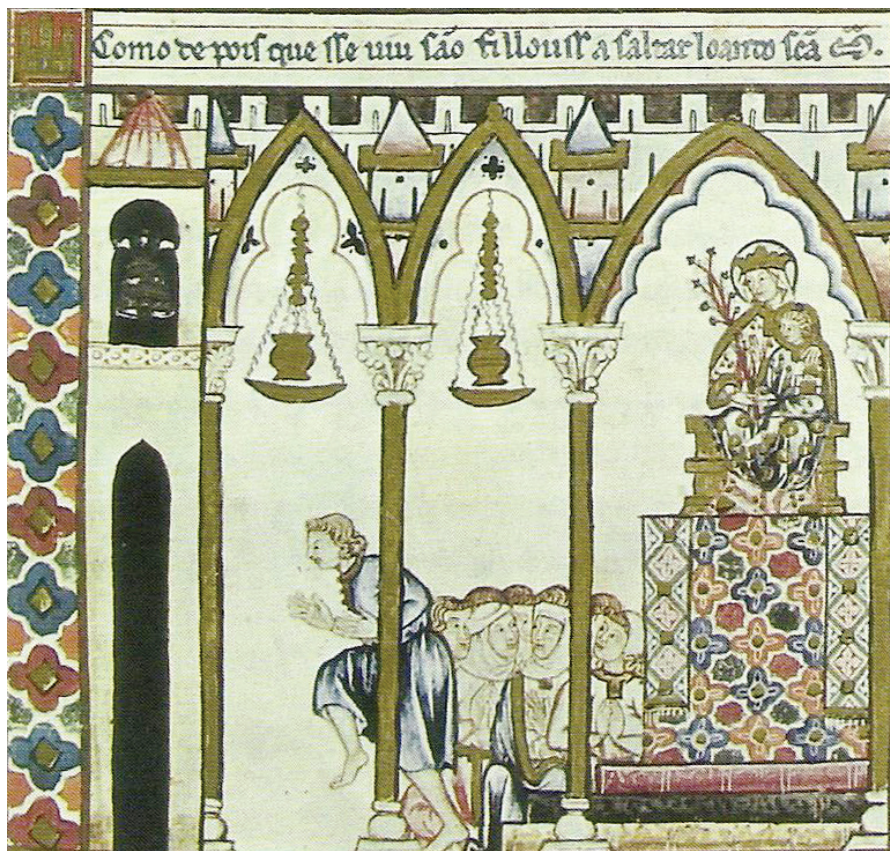 Como de pois que sse uiu são fillouss a saltar loando scã